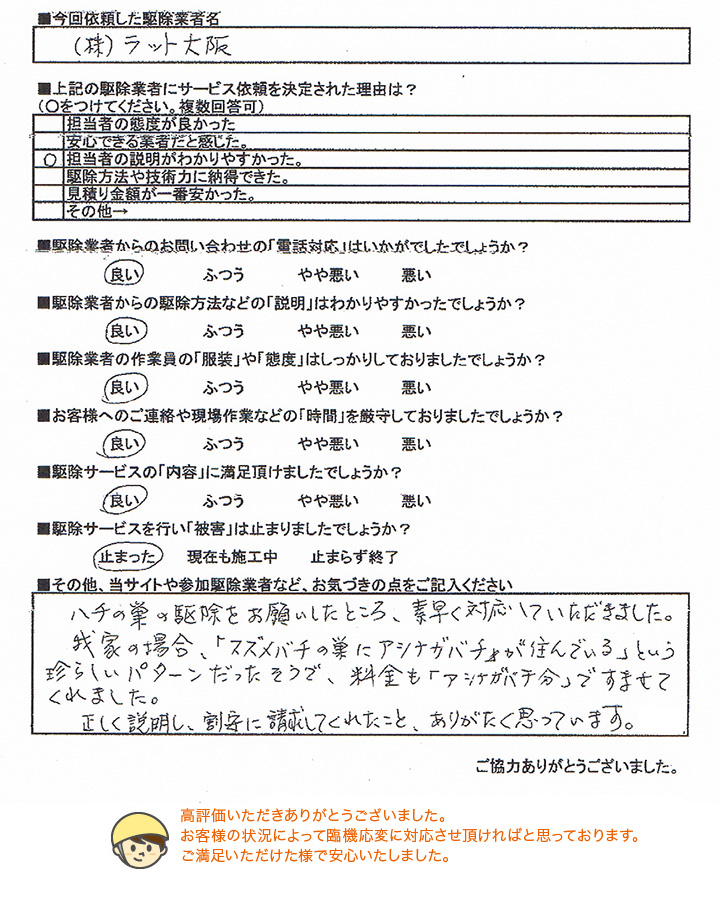 ■今回依頼した駆除業者名
(株)ラット大阪
■上記の駆除業者にサービス依頼を決定された理由は？
(○をつけてください。複数回答可)
担当者の態度が良かった
安心できる業者だと感じた。
○ 担当者の説明がわかりやすかった。
駆除方法や技術力に納得できた。
見積り金額が一番安かった。
その他→
■駆除業者からのお問い合わせの「電話対応」はいかがでしたでしょうか？
良い ふつう やや悪い 悪い
■駆除業者からの駆除方法などの「説明」はわかりやすかったでしょうか？
良い ふつう やや悪い 悪い
■駆除業者の作業員の「服装」や「態度」はしっかりしておりましたでしょうか？
良い ふつう やや悪い 悪い
■お客様へのご連絡や現場作業などの「時間」を厳守しておりましたでしょうか？
良い ふつう やや悪い 悪い
■駆除サービスの「内容」に満足頂けましたでしょうか？
良い ふつう やや悪い 悪い
■駆除サービスを行い「被害」は止まりましたでしょうか？
止まった 現在も施工中 止まらず終了
■その他、当サイトや参加駆除業者など、お気づきの点をご記入ください
ハチの巣の駆除をお願いしたところ、素早く対応していただきました。
我家の場合、「スズメバチの巣にアシナガバチが住んでいる」という
珍らしいパターンだったそうで、料金も「アシナガバチ分」ですませて
くれました。
正しく説明し、割安に請求してくれたこと、ありがたく思っています。
ご協力ありがとうございました。
高評価いただきありがとうございました。
お客様の状況によって臨機応変に対応させ頂ければと思っております。
ご満足いただけた様で安心いたしました。